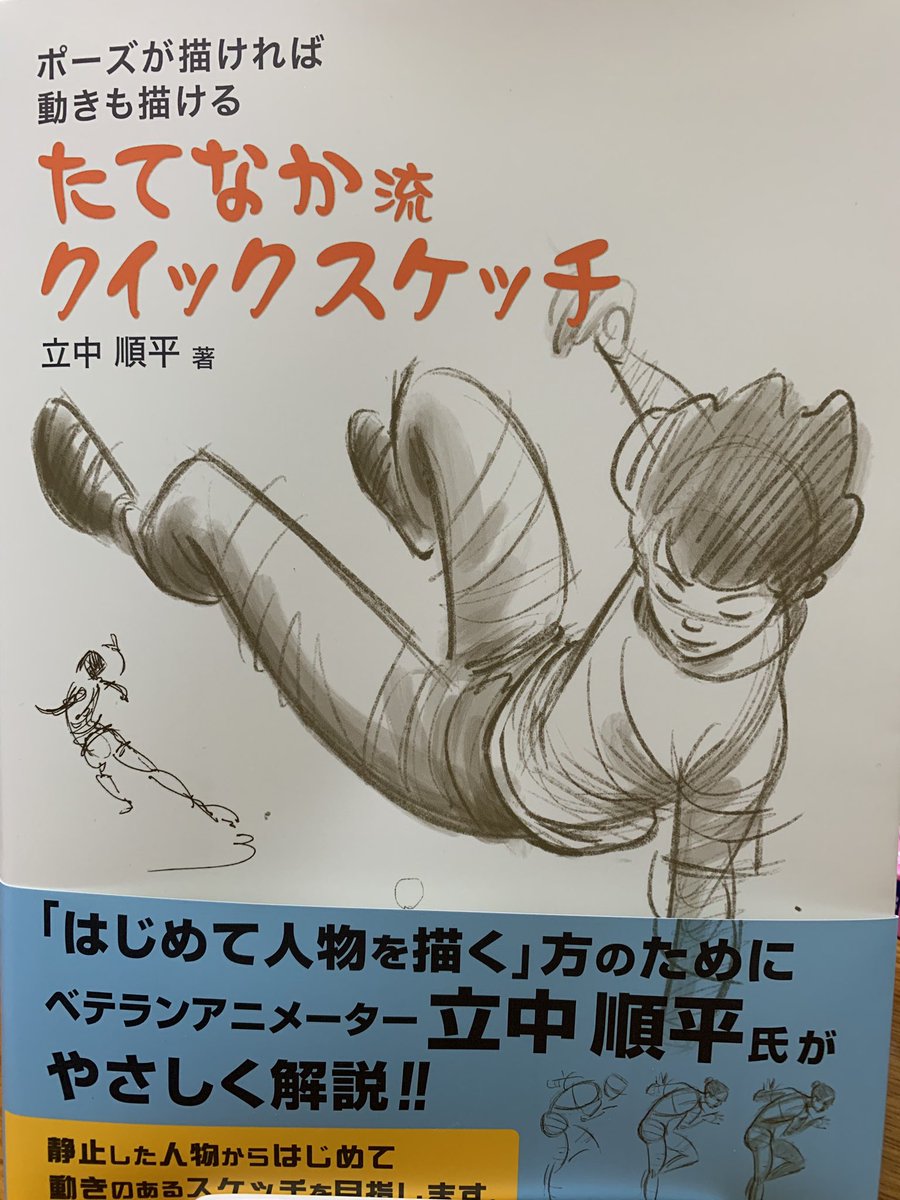 ポーズが描ければ
動きも描ける
たてなか流
クイックスケッチ
立中 順平 著
「はじめて人物を描く」方のために
ベテランアニメーター 立中 順平氏が
やさしく解説!!
静止した人物からはじめて
動きのあるスケッチを目指します。